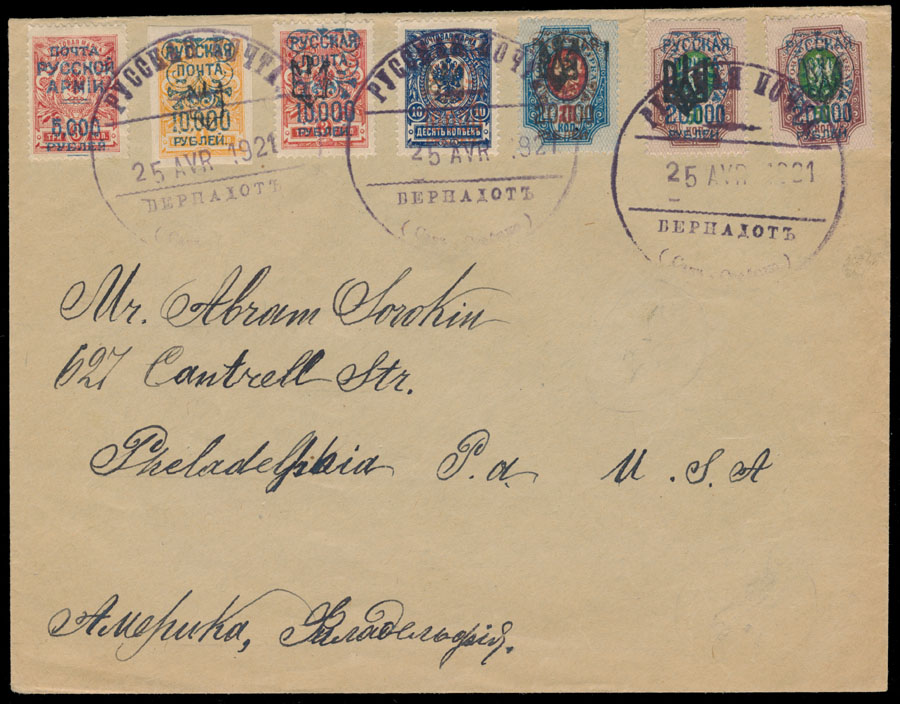 ПОЧТА
РУССКОЙ
АРМІИ
5.000
РУБЛЕЙ
РУССКАЯ
ПОЧТА
10.000
РУБЛЕЙ.
РУССКАЯ
ПОЧТА
10.000
РУБЛЕЙ
10 10
ДЕСЯТЬ КОПѢЕКЪ
20.000
РУССКАЯ
20.000
РУБЛЕЙ
РУССКАЯ
20.000
РУБЛЕЙ
РУССКАЯ ПОЧТА
25 AVR 1921
БЕРНАДОТЪ
РУССКАЯ ПОЧТА
25 AVR .1921
БЕРНАДОТЪ
РУССКАЯ ПОЧТА
25 AVR 1921
БЕРНАДОТЪ
Mr. Abram Sorokin
627 Cantrell Str.
Pheladelphia P.a. U.S.A
Америка, Филадельфія.